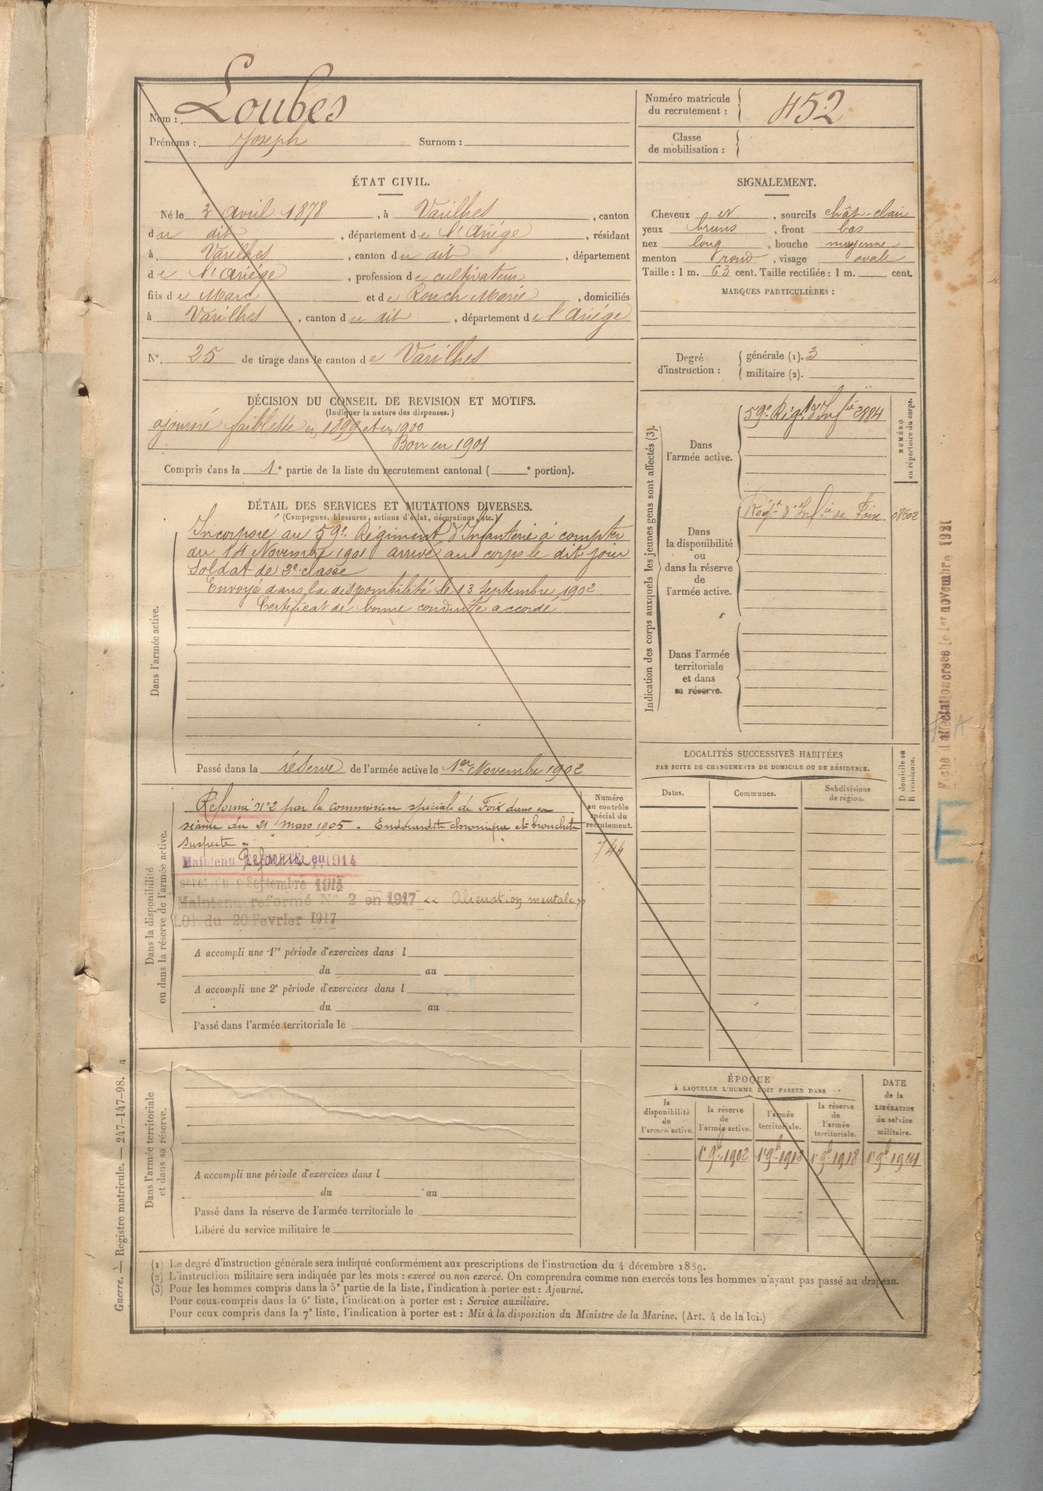 Nom : Loubes
Prénoms : Joseph Surnom :
Numéro matricule du recrutement : 452
Classe de mobilisation :
ÉTAT CIVIL.
Né le 3 avril 1878, à Varilhes, canton
du dit, département de l'Ariége, résidant
à Varilhes, canton du dit, département
de l'Ariége, profession de cultivateur
fils de Marc et de Rouch Marie, domiciliés
à Varilhes, canton du dit, département de l'Ariége
N° 25 de tirage dans le canton de Varilhes
SIGNALEMENT.
Cheveux et, sourcils chât-clair
yeux bruns, front bas
nez long, bouche moyenne
menton rond, visage ovale
Taille : 1 m. 63 cent. Taille rectifiée : 1 m. cent.
MARQUES PARTICULIÈRES :
Degré d'instruction : générale (1). 3
militaire (2).
DÉCISION DU CONSEIL DE REVISION ET MOTIFS.
(Indiquer la nature des dispenses.)
ajourné faiblesse en 1899 et en 1900
Bon en 1901
Compris dans la 1e partie de la liste du recrutement cantonal ( e portion).
DÉTAIL DES SERVICES ET MUTATIONS DIVERSES.
(Campagnes, blessures, actions d'éclat, décorations, etc.)
Dans l'armée active.
Incorporé au 59e Régiment d'Infanterie à compter
du 14 Novembre 1901 arrivé au corps le dit jour
Soldat de 2e classe
Envoyé dans la disponibilité le 13 Septembre 1902
Certificat de bonne conduite accordé
Passé dans la réserve de l'armée active le 1er Novembre 1902
Indication des corps auxquels les jeunes gens sont affectés (3).
NUMÉRO au répertoire du corps.
Dans l'armée active.
59e Régt d'Infie 2884
Dans la disponibilité ou dans la réserve de l'armée active.
Régt d'Infie de Foix 01602
Dans l'armée territoriale et dans sa réserve.
Fiche d'affectation créée le 1er novembre 1921
E
LOCALITÉS SUCCESSIVES HABITÉES
PAR SUITE DE CHANGEMENTS DE DOMICILE OU DE RÉSIDENCE.
D domicile ou R résidence.
Dates. Communes. Subdivisions de région.
Dans la disponibilité ou dans la réserve de l'armée active.
Numéro au contrôle spécial du recrutement.
744
Réformé N° 2 par la commission spéciale de Foix dans sa
séance du 21 mars 1905. Endocardite chronique et bronchite
suspecte.
Maintenu Réformé en 1914
Décret du 9 Septembre 1914
Maintenu reformé N° 2 en 1917 « Aliénation mentale »
Loi du 20 Fevrier 1917
A accompli une 1re période d'exercices dans l
du au
A accompli une 2e période d'exercices dans l
du au
Passé dans l'armée territoriale le
Dans l'armée territoriale et dans sa réserve.
A accompli une période d'exercices dans l
du au
Passé dans la réserve de l'armée territoriale le
Libéré du service militaire le
ÉPOQUE
À LAQUELLE L'HOMME DOIT PASSER DANS
DATE de la LIBÉRATION du service militaire.
la disponibilité de l'armée active. la réserve de l'armée active. l'armée territoriale. la réserve de l'armée territoriale.
1er 9b 1902 1er 9b 1918 1er 9b
Guerre. — Registre matricule. — 247-147-98.
(1) Le degré d'instruction générale sera indiqué conformément aux prescriptions de l'instruction du 4 décembre 1889.
(2) L'instruction militaire sera indiquée par les mots : exercé ou non exercé. On comprendra comme non exercés tous les hommes n'ayant pas passé au drapeau.
(3) Pour les hommes compris dans la 5e partie de la liste, l'indication à porter est : Ajourné.
Pour ceux compris dans la 6e liste, l'indication à porter est : Service auxiliaire.
Pour ceux compris dans la 7e liste, l'indication à porter est : Mis à la disposition du Ministre de la Marine. (Art. 4 de la loi.)